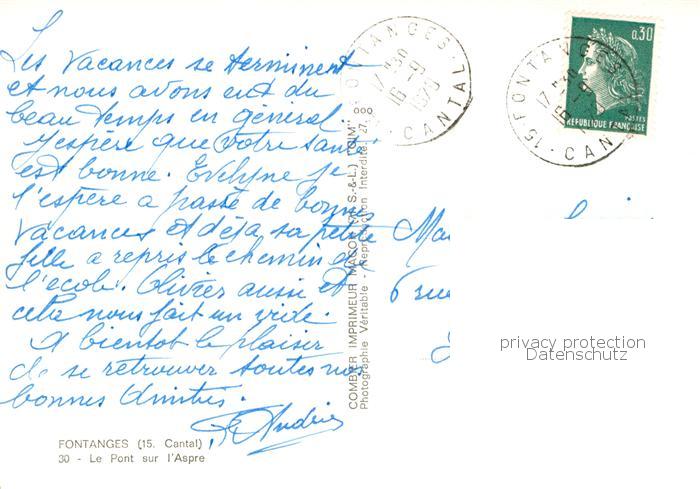 Les vacances se terminent
et nous avons eut du
beau temps en général
J'espère que votre santé
est bonne. Evelyne je
l'espère a passé de bonnes
vacances et déjà sa petite
fille a repris le chemin de
l'école. Olivier aussi et
cela nous fait un vide.
A bientot le plaisir
de se retrouver toutes nos
bonnes Amitiés.
FONTANGES (15. Cantal)
30 - Le Pont sur l'Aspre
COMBIER IMPRIMEUR MACON (S.-&-L.) "CIM"
Photographie Véritable - Reproduction Interdite
FONTANGES
17H30
16-9
CANTAL
0,30
POSTES
REPUBLIQUE FRANÇAISE
15 FONTANGES
17H30
CANTAL
6 rue
privacy protection
Datenschutz